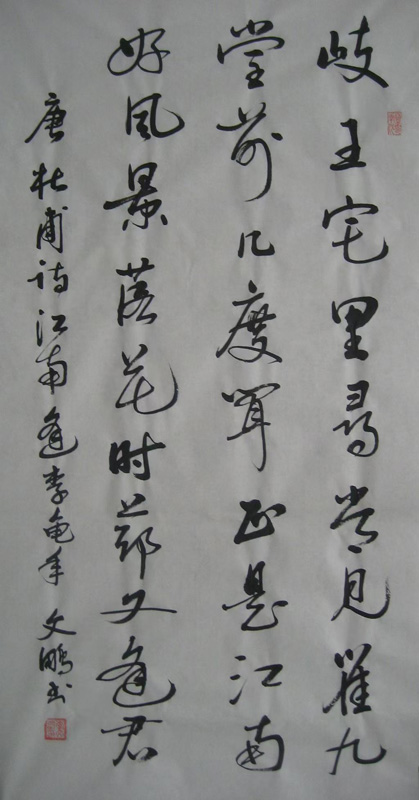 歧王宅里尋常见崔九
堂前几度闻正是江南
好风景落花时節又逢君
唐杜甫诗江南逢李龟年 文鹏书